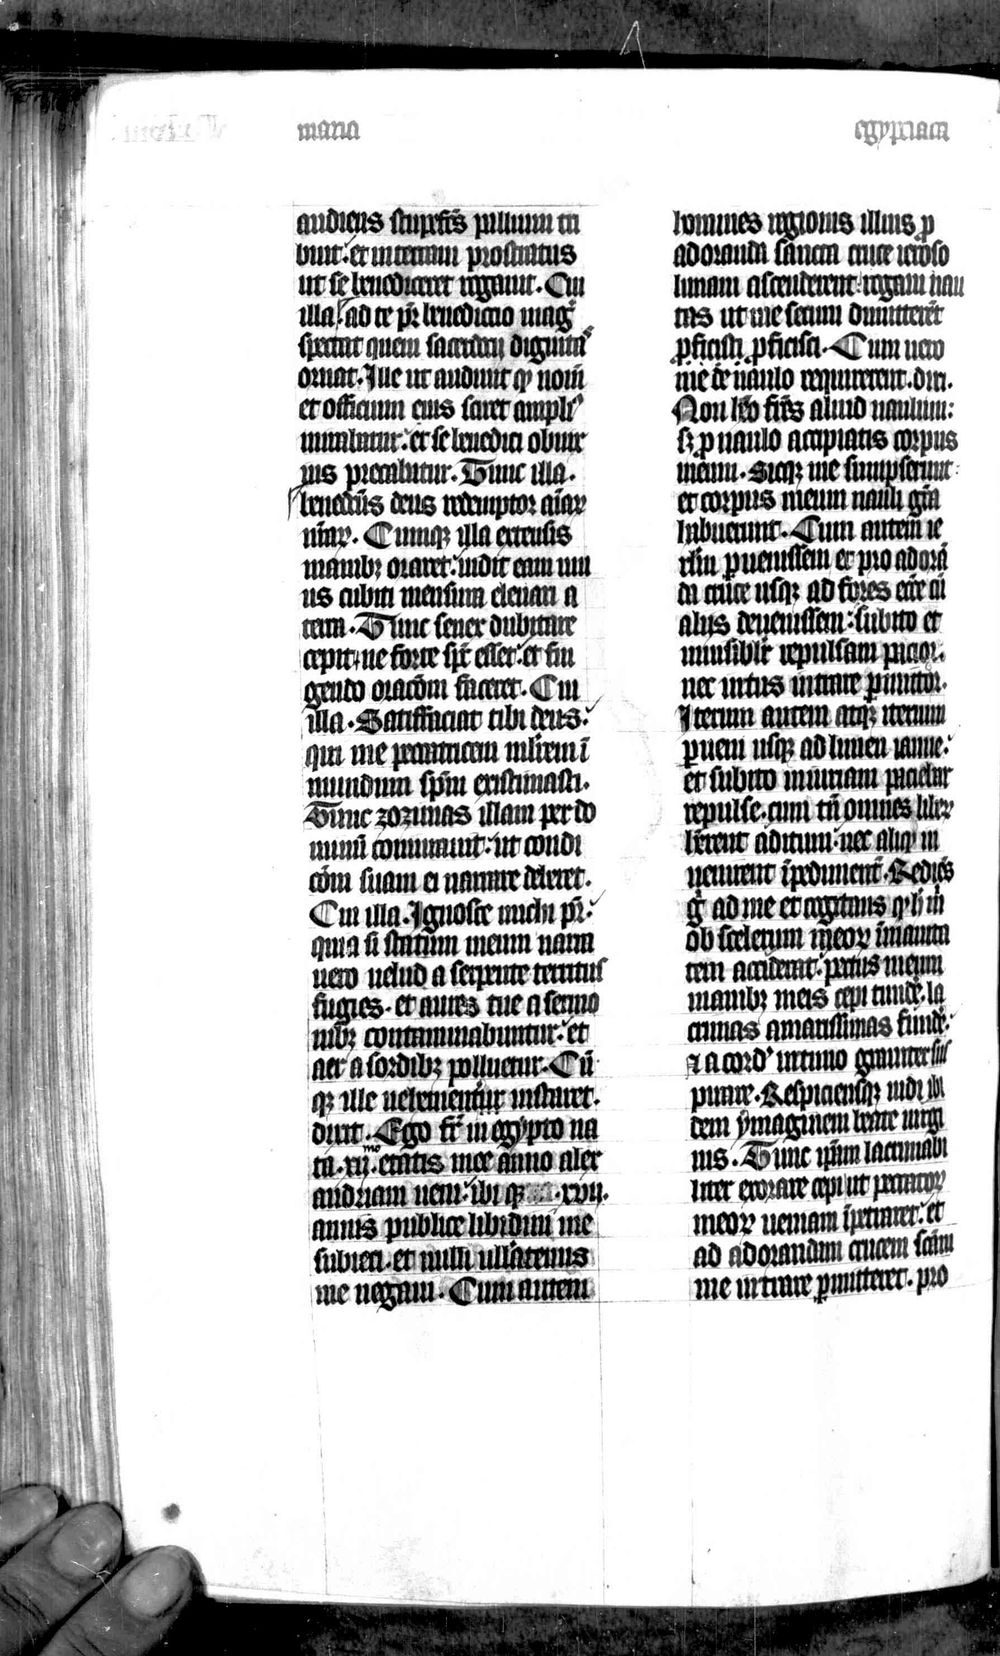 maria
egypciaca
audiens stupefc̄s pillum tri
buit. et in terram prostratus
ut se benediceret rogauit. Cui
illa ad te pr̄ benedictio mag̉
spectat quem sacerdotij dignita
ornat. Ille ut audiuit ꝙ nom̄
et officium eius sciret ampli⁹
mirabatur. et se benedici obnix
ius precabatur. Tunc illa.
benedc̄us deus redemptor aīaꝝ
nr̄aꝝ. Cumqꝫ illa extensis
manibꝫ oraret. uidit eam uni
us cubiti mensura eleuari a
terra. Tunc senex dubitare
cepit ne forte sp̄c esset. et fin
gendo orac̄om faceret. Cui
illa. Satiffaciat tibi deus.
qui me peccatricem mlīrem ī
mundum sp̄m existimasti.
Tunc zozimas illam per do
minū coniurauit. ut condi
cōm suam ei narrare deberet.
Cui illa. Ignosce michi pr̄.
quia si statum meum narra
uero uelud a serpente territus
fugies. et aures tue a sermo
nibꝫ contaminabuntur. et
aer a sordibꝫ polluetur. Cū
qꝫ ille uehementur instaret.
dixit. Ego fr̄ in egypto na
ta. xii.mo etatis mee anno alex
andriam ueni. ibi qꝫ .xvii.
annis publice libidini me
subieci. et nulli ullatenus
me negaui. Cum autem
homines regionis illius ꝓ
adoranda sancta cruce ieroso
limam ascenderent. rogaui nau
tas ut me secum dimitterēt
ꝓficisci ꝓficisci. Cum uero
me de naulo requirerent. dixi.
Non hēo frēs aliud naulum:
sꝫ ꝓ naulo accipiatis corpus
meum. Sicqꝫ me sumpserunt:
et corpus meum nauli gr̄a
habuerunt. Cum autem ie
rlm̄ ꝑuenissem et pro adorā
da cruce usqꝫ ad fores ecc̄e cū
alijs deuenissem. subito et
inuisibilr̄ repulsam pacior.
nec intus intrare ꝑmittor.
Iterum autem atqꝫ iterum
ꝑueni usqꝫ ad limen ianue.
et subito iniuriam paciebar
repulse. cum tn̄ omnes libeꝝ
hēreut aditum. nec aliqꝫ in
uenirent īpedimentū. Rediēs
g̊ ad me et cogitans ꝙ h̄ m̄
ob scelerum meoꝝ īmanita
tem acciderat. pectus meum
manibꝫ meis cepi tundē. la
crimas amarissimas fundē.
⁊ a cordꝭ intimo grauiter sus
pirare. Respiciensqꝫ uidi ibi
dem ymaginem beate uirgi
nis. Tunc ip̄am lacrimabi
liter exorare cepi ut peccatoꝝ
meoꝝ ueniam īpetraret. et
ad adorandam crucem scām
me intrare ꝑmitteret. pro